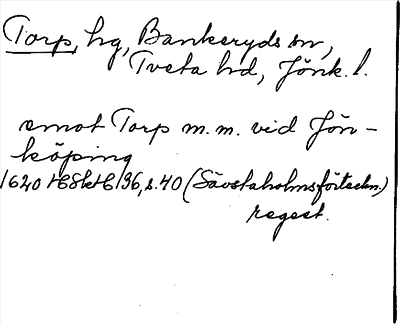 Torp, hg, Bankeryds sn,
Tveta hd, Jönk. l.
emot Torp m.m. vid Jön-
köping
1620 HSkH 136, s. 40 (Sävstaholmsförteckn.)
regest.